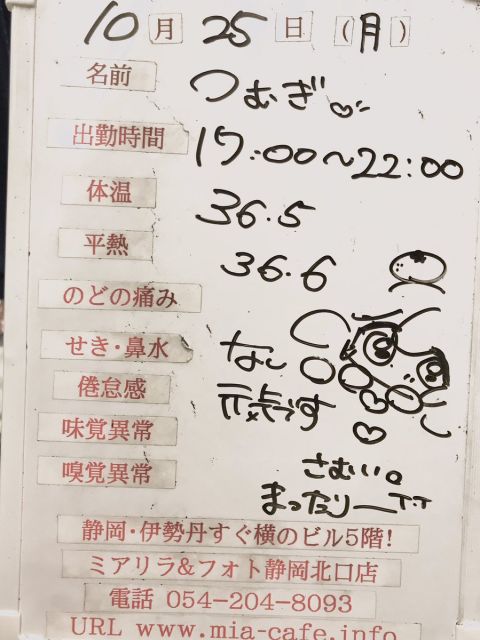 10月25日(月)
名前 つむぎ♡
出勤時間 17:00〜22:00
体温 36.5
平熱 36.6
のどの痛み
せき・鼻水 なし
倦怠感 元気です
味覚異常
嗅覚異常 さむい。
まったりー
静岡・伊勢丹すぐ横のビル5階!
ミアリラ&フォト静岡北口店
電話 054-204-8093
URL www.mia-cafe.info